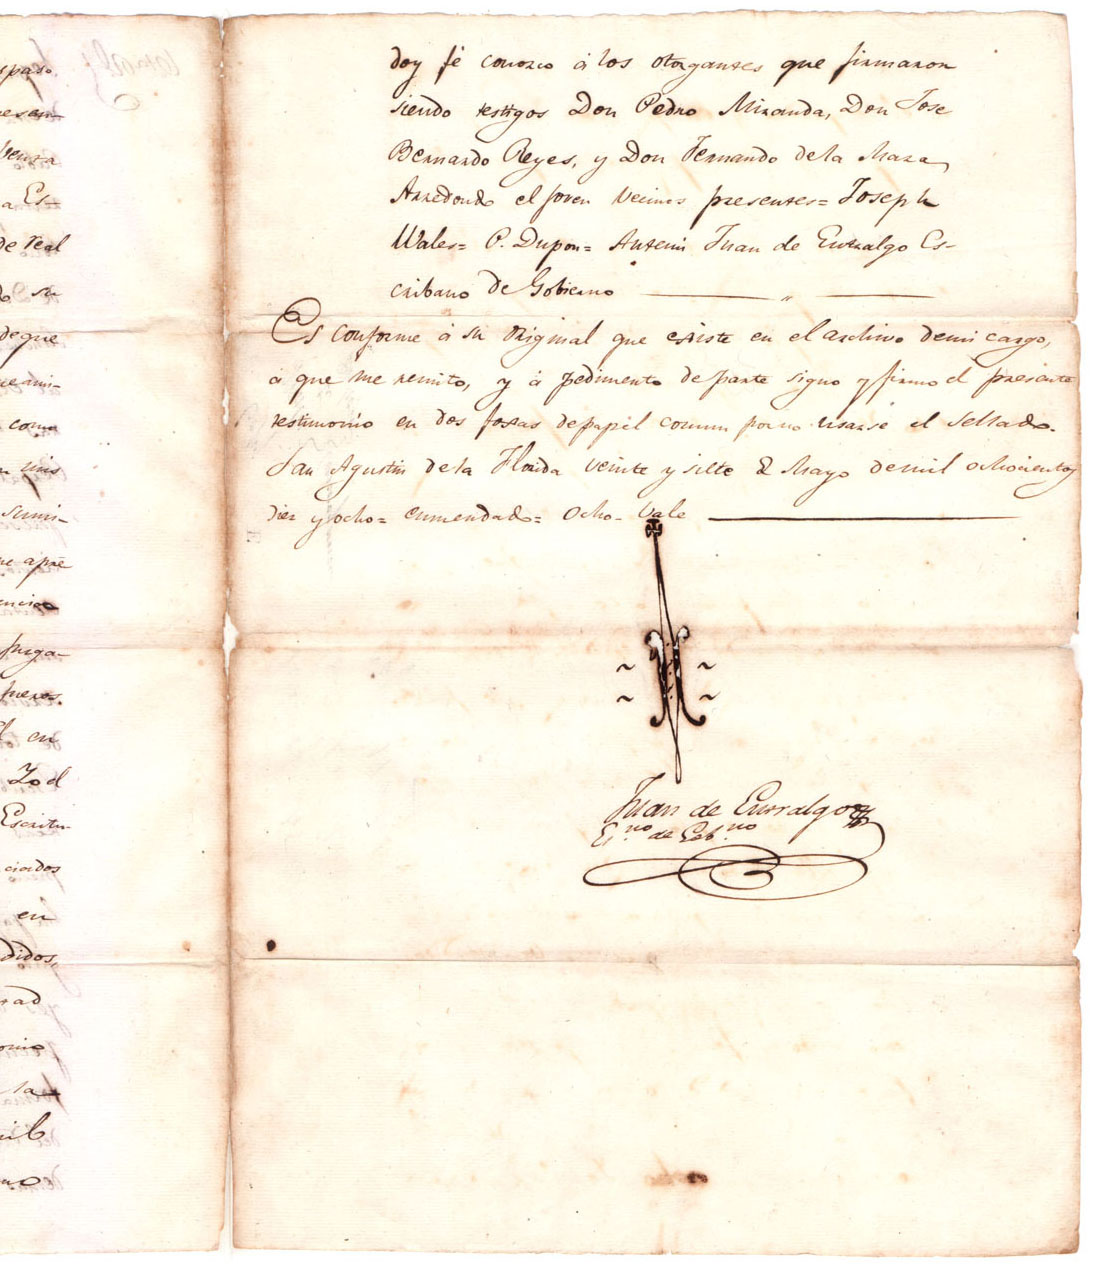 spaso.
a Es-
de real
su
deque
como
sumi-
puga-
fueros.
en
Escritu-
ciados
en
didos,
doy fé conosco á los otorgantes que firmaron
siendo testigos Don Pedro Miranda, Don Jose
Bernardo Reyes, y Don Fernando dela Maza
Arredondo el joven vecinos presentes= Joseph
Wales= P. Dupon= Antemi Juan de Entralgo Es-
cribano de Gobierno
Es conforme á su original que existe en el archivo demi cargo,
á que me remito, y á pedimento de parte signo y firmo el presente
testimonio en dos foxas depapel comun porno usarse el sellado.
San Agustin dela Florida veinte y siete de Mayo demil ochocientos
diez y ocho= enmendado= ocho- Vale
Juan de Entralgo
Esno de Gobno